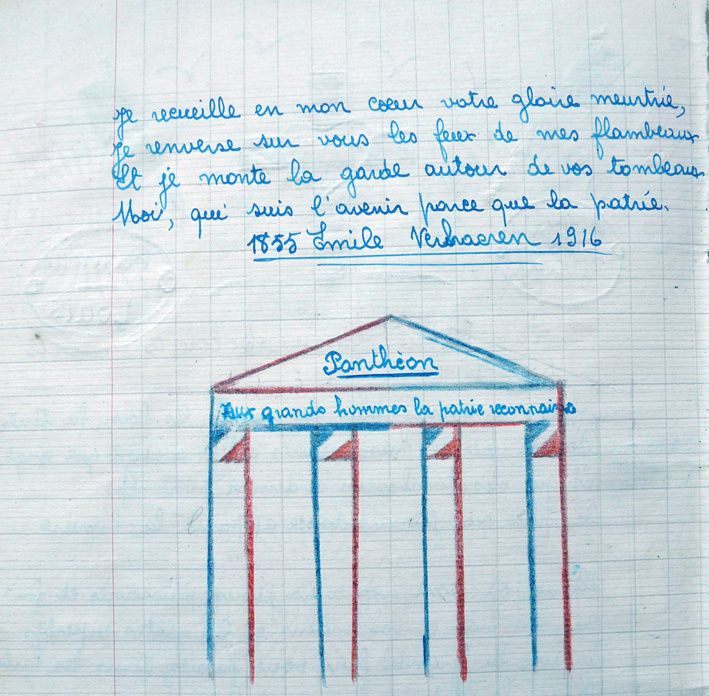 Je recueille en mon cœur votre gloire meurtrie,
Je renverse sur vous les feux de mes flambeaux
Et je monte la garde autour de vos tombeaux
Moi, qui suis l'avenir parce que la patrie.
1855 Emile Verhaeren 1916
Panthéon
Aux grands hommes la patrie reconnaiss